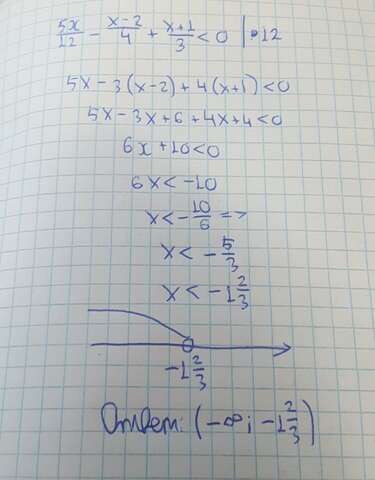 5x/12 - x-2/4 + x+1/3 < 0 | •12
5x - 3(x-2) + 4(x+1) < 0
5x - 3x + 6 + 4x + 4 < 0
6x + 10 < 0
6x < -10
x < - 10/6 =>
x < - 5/3
x < -1 2/3
-1 2/3
Ответ: (-∞; -1 2/3)